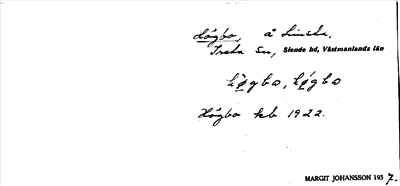 Högbo, å Linsta,
Irsta sn, Siende hd, Västmanlands län
hø̨gbo, hø̨gbo
Högbo kb 1922.
MARGIT JOHANSSON 1937.